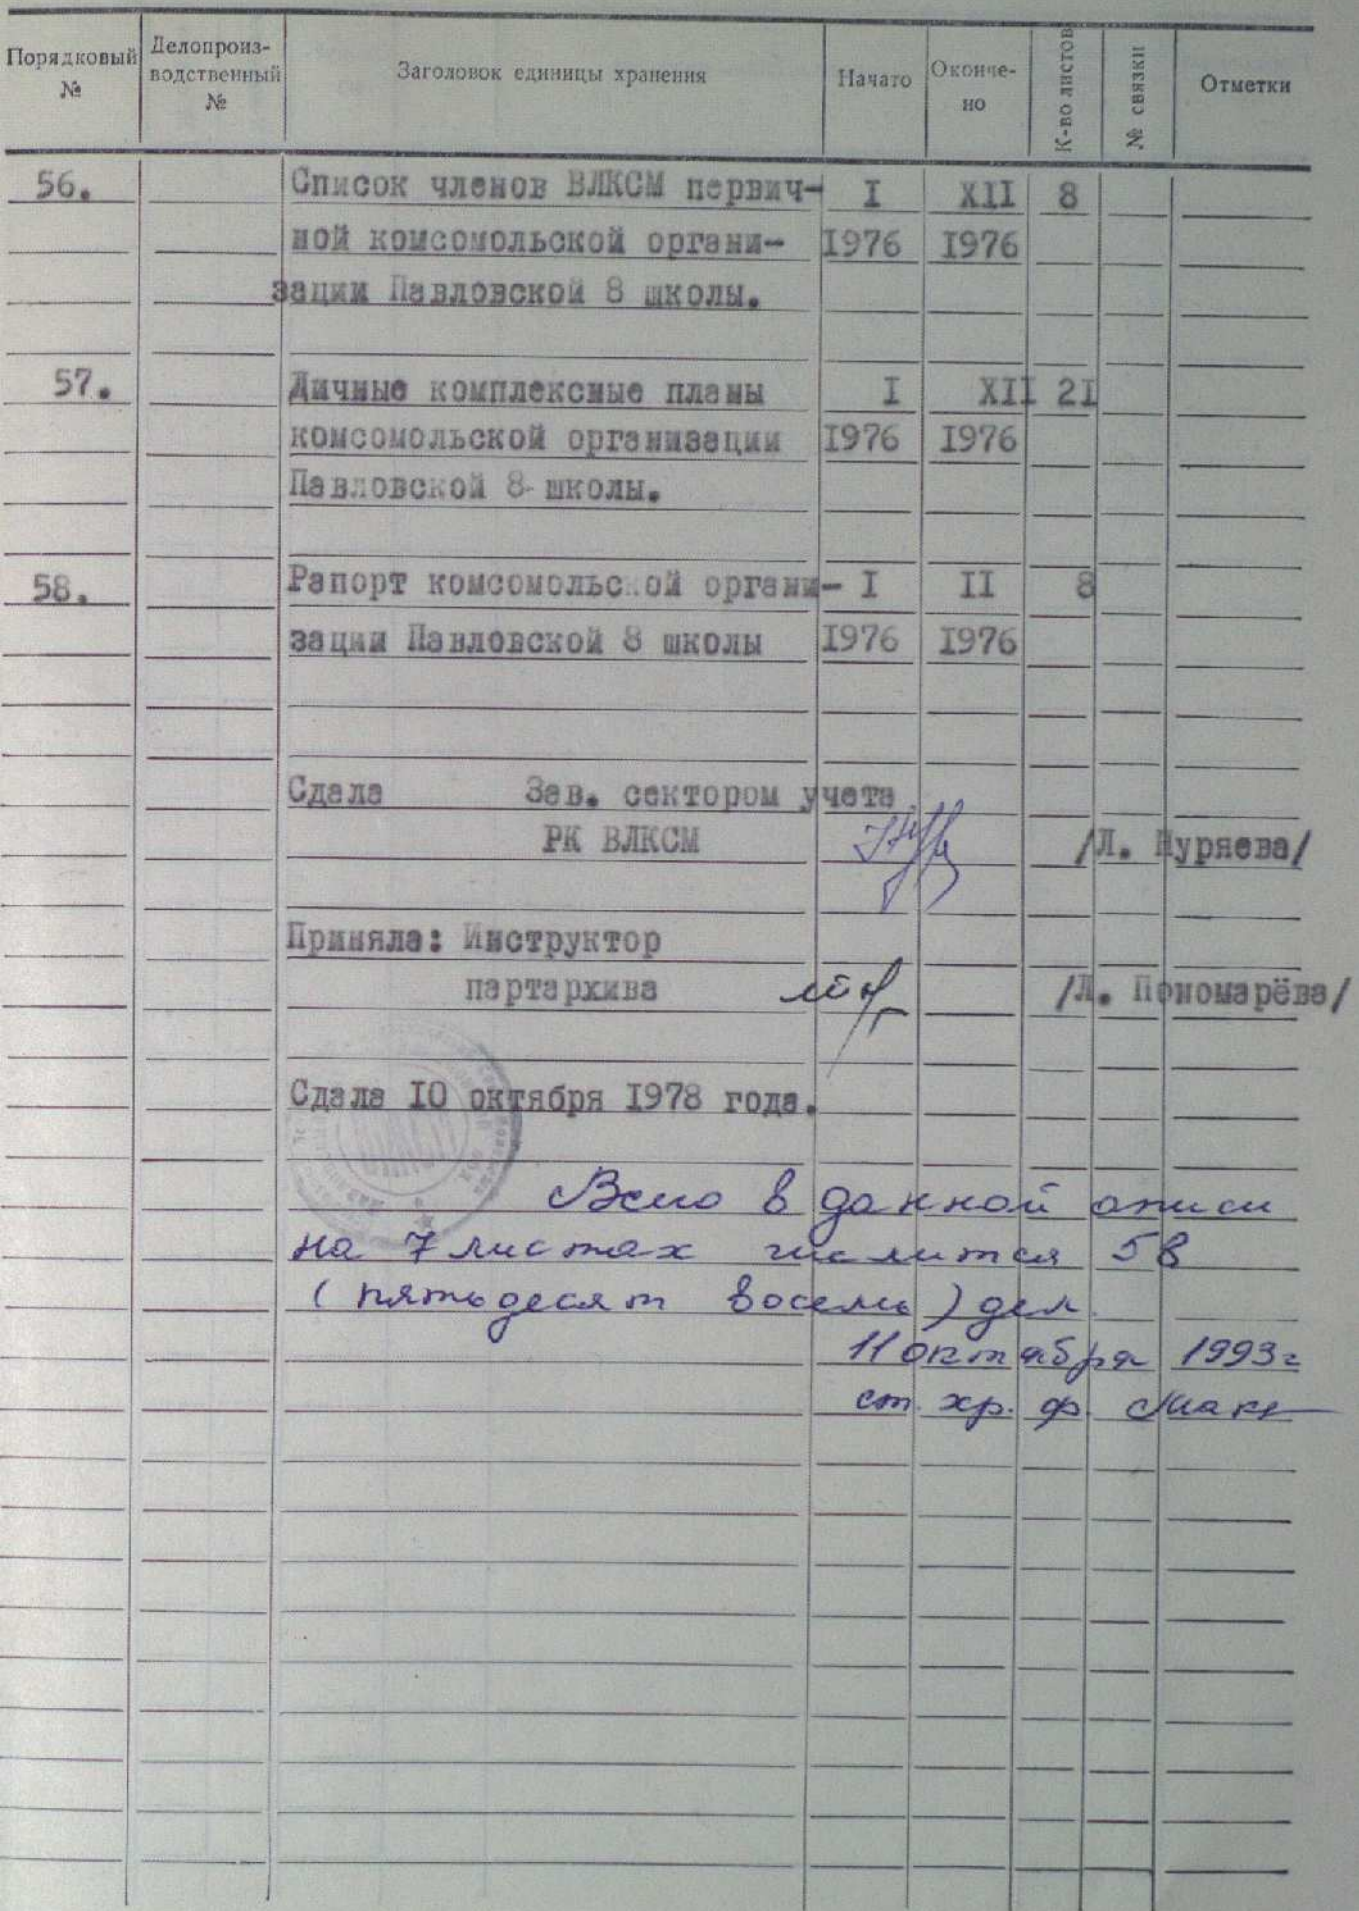 Порядковый № Делопроиз-водственный № Заголовок единицы хранения Начато Оконче-но К-во листов № связки Отметки
56. Список членов ВЛКСМ первич- I XII 8
ной комсомольской органи- 1976 1976
зации Павловской 8 школы.
57. Личные комплексные планы I XII 21
комсомольской организации 1976 1976
Павловской 8 школы.
58. Рапорт комсомольской органи- I II 8
зации Павловской 8 школы 1976 1976
Сдала Зав. сектором учета
РК ВЛКСМ /Л. Нуряева/
Приняла: Инструктор
партархива /Л. Пономарёва/
Сдала 10 октября 1978 года.
Всего в данной описи
на 7 листах числится 58
(пятьдесят восемь) дел.
11 октября 1993г
ст. хр. ф.